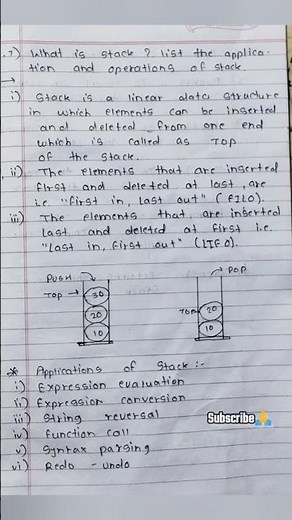 7) What is stack ? List the applica-
tion and operations of stack.
→
i) Stack is a linear data structure
in which elements can be inserted
and deleted from one end
which is called as TOP
of the stack.
ii) The elements that are inserted
first and deleted at last, are
i.e "first in, last out" (FILO).
iii) The elements that are inserted
last and deleted at first i.e.
"last in, first out" (LIFO).
PUSH POP
Top → 30
20 TOP→ 20
10 10
* Applications of Stack :-
i) Expression evaluation
ii) Expression conversion
iii) String reversal
Subscribe🙏
iv) function call
v) Syntax parsing
vi) Redo - undo